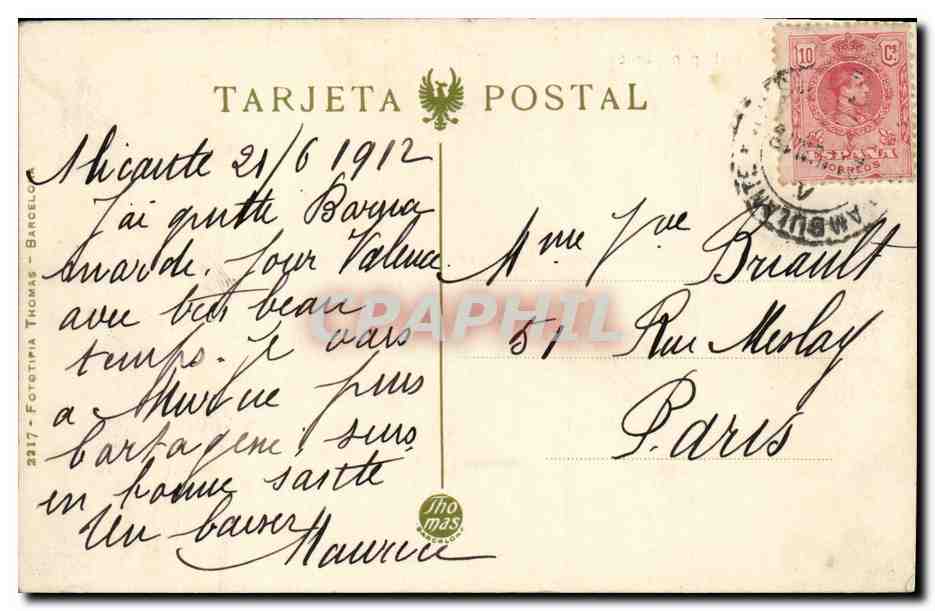 TARJETA POSTAL
10 Cs
ESPAÑA
CORREOS
AMBULANTE
Alicante 21/6 1912
J'ai quitté
mardi. pour Valence
avec très beau
temps. Je vais
a Murcie puis
Cartagene. suis
en bonne santé
Un baiser
Maurice
Mme Jve Briault
51 Rue Meslay
Paris
2217 - FOTOTIPIA THOMAS - BARCELONA
Thomas
BARCELONA
CRAPHIL